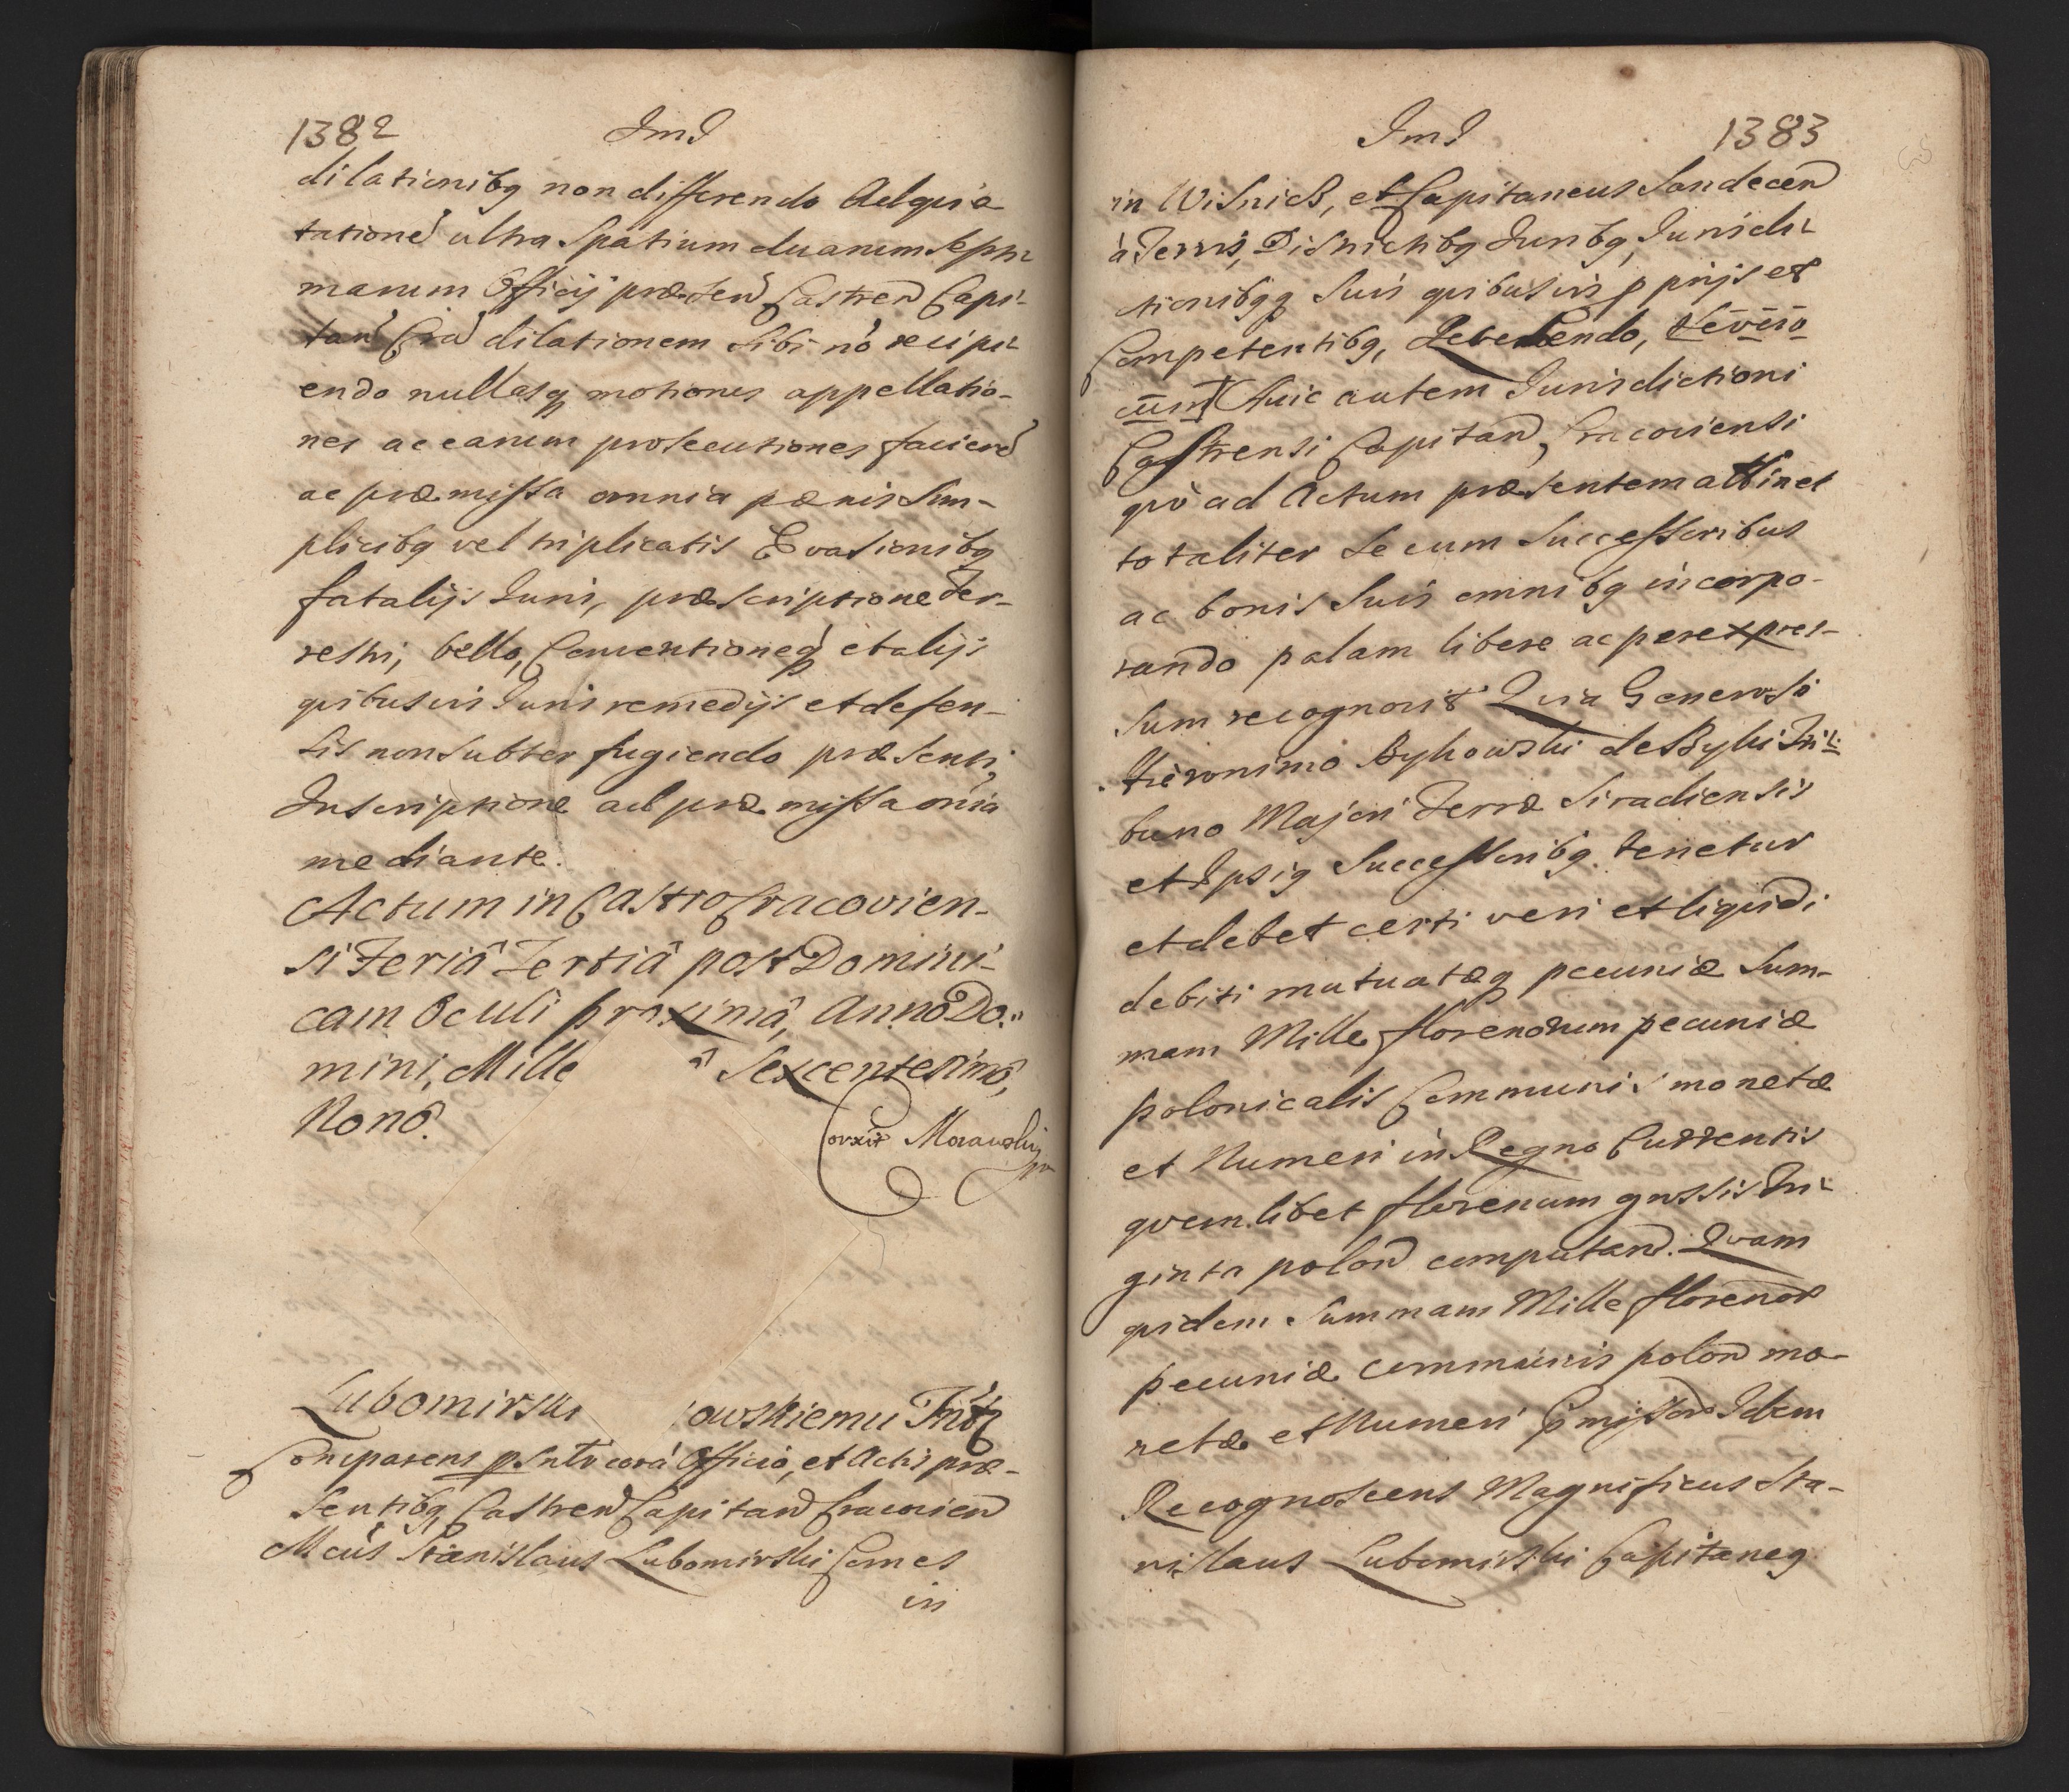 1382 Jmd
dilationibg non differendo Adquie
tatione ultra Spatium duarum Septi
manum Officij præsen Castren Capi-
tan Cra dilationem sibi no recipi-
endo nullasq motiones appellatio-
nes ac earum prosecutiones faciend
ac præmissa omnia pænis Sim-
plicibg vel triplicatis Evasionibg
fatalijs Juris, præscriptione Ter-
restri, bello, Conventioneq et alijs
quibusvis Juris remedijs et defen-
sis non subter fugiendo præsenti,
Inscriptione ad præmissa omia
mediante.
Actum in Castro Cracovien-
si Feriâ Tertiâ post Domini-
cam Oculi proximâ, Anno Do-
mini, Mille Sexcentesimô,
Nonô.
Corxit Morawski
Lubomirski owskiemu
Comparens psntr corâ Officio, et Actis præ-
sentibg Castren Capitan Cracovien
Mcus Stanislaus Lubomirski Comes
in
Jmd 1383
in Wisnicz, et Capitaneus Sandecen
à Terris, Districtibg Juribg, Jurisdi-
tionibgq Suis quibusvis pprijs et
Competentibg, Recedendo,
Huic autem Jurisdictioni
Castrensi Capitan, Cracoviensi
quò ad Actum præsentem attinet
totaliter se cum Successoribus
ac bonis Suis omnibg incorpo-
rando palam libere ac per expres-
sum recognovit Quia Generoso
Hieronimo Bykowski de Byki Tri-
buno Majori Terræ Siradiensis
et Ipsig Successoribg. tenetur
et debet certi veri et liquidi
debiti mutuatæq pecuniæ Sum-
mam Mille florenorum pecuniæ
polonicalis Communis monetæ
et Numeri in Regno Currentis
quemlibet florenum grossis Tri-
ginta polon computand. Quam
quidem Summam Mille florenor
pecuniæ communis polon mo-
netæ et Numeri pmissor Idem
Recognoscens Magnificus Sta-
nislaus Lubomirski Capitaneg